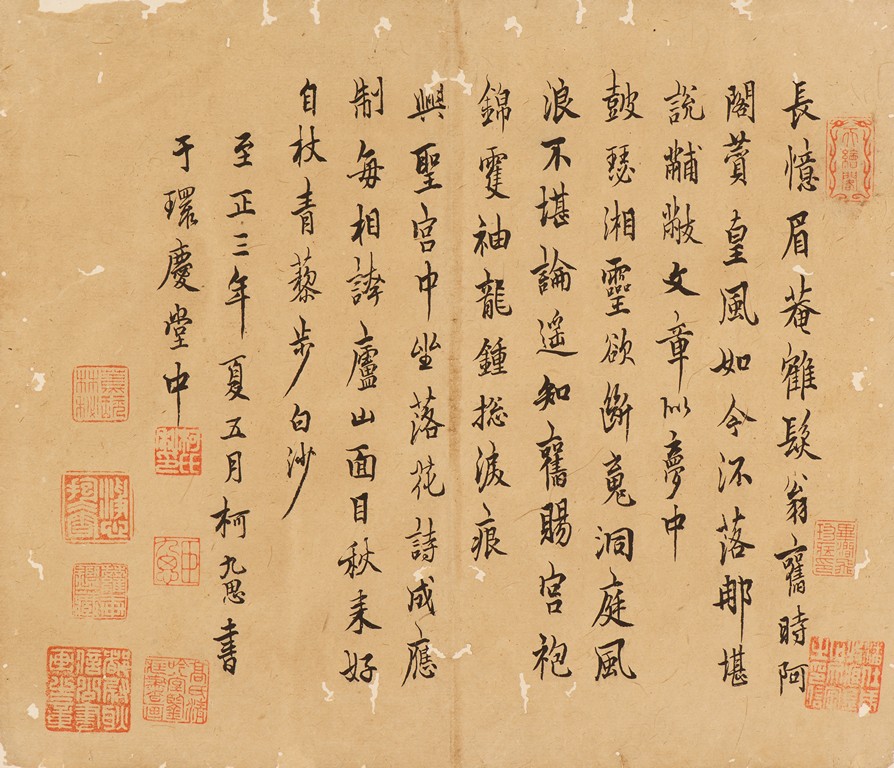 長憶眉菴鶴髮翁舊時阿
閣賛皇風如今流落那堪
說黼黻文章似夢中
鼓瑟湘靈欲斷魂洞庭風
浪不堪論遥知舊賜宮袍
錦雙袖龍鍾揔淚痕
興聖宮中坐落花詩成應
制每相誇廬山面目秋来好
自杖青藜步白沙
至正三年夏五月柯九思書
于環慶堂中
柯氏敬仲